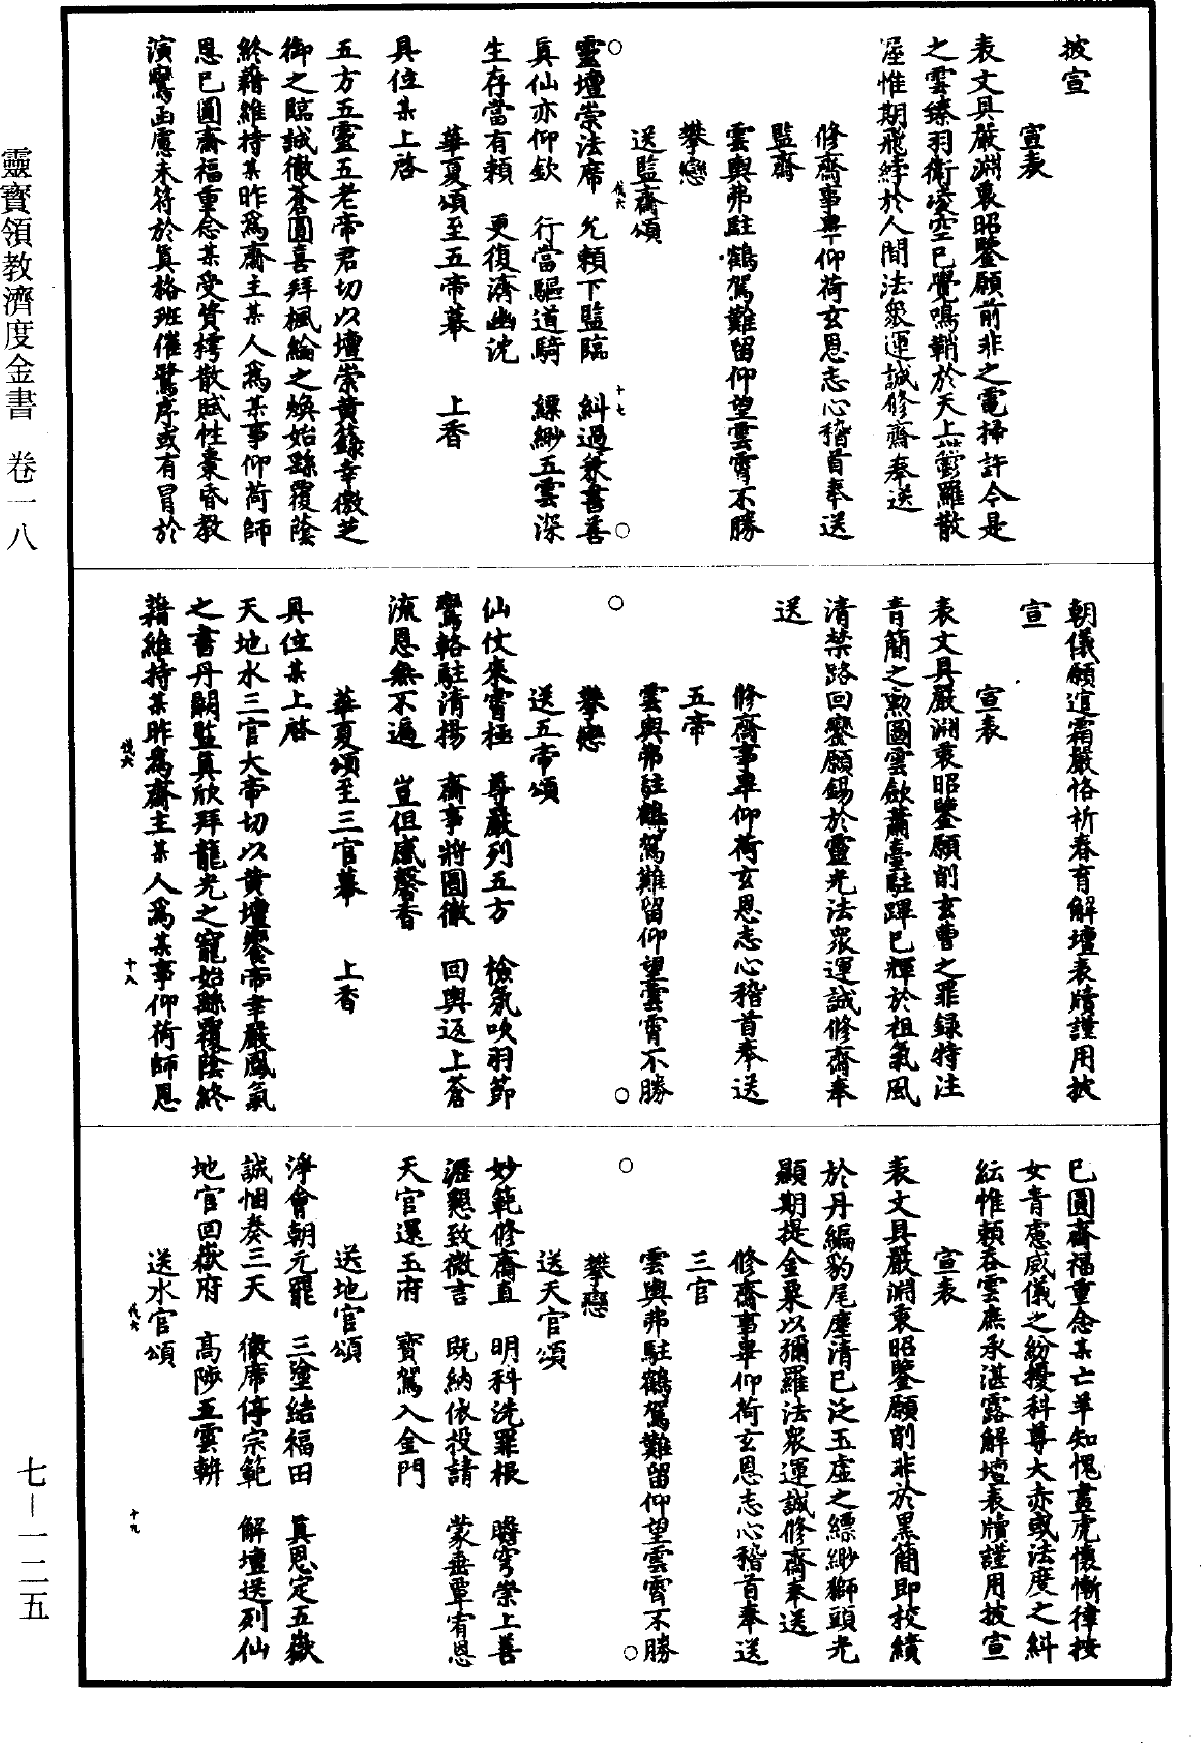 披宣
宣表
表文具嚴淵衷昭鑒願前非之電掃許今是
之雲臻羽衛凌空已覺鳴鞘於天上鬱羅散
渥惟期飛綍於人間法衆運誠修齋奉送
修齋事畢仰荷玄恩志心稽首奉送
監齋
攀戀
雲輿弗駐鶴駕難留仰望雲霄不勝
送監齋頌
靈壇崇法席　允賴下監臨　糾過兼書善
真仙亦仰欽　行當驅道騎　縹緲五雲深
生存當有賴　更復濟幽沈
華夏頌至五帝幕　上香
具位某上啓
五方五靈五老帝君切以壇崇黃籙幸徼芝
御之臨誠徹蒼圓喜拜楓綸之煥始繇覆蔭
終藉維持某昨爲齋主某人爲某事仰荷師
恩已圓齋福重念某受質樗散賦性棗昏敷
演鸞函慮未符於真格班催鷺序或有冒於
朝儀願逭霜嚴恪祈春育解壇表牘謹用披
宣
宣表
表文具嚴淵衷昭鑒願削玄曹之罪録特注
青簡之勲圖雲歛蕭臺駐蹕已輝於祖氣風
清禁路回鑾願錫於靈光法衆運誠修齋奉
送
修齋事畢仰荷玄恩志心稽首奉送
五帝
雲輿弗駐鶴駕難留仰望雲霄不勝
攀戀
送五帝頌
仙仗來霄極　尊嚴列五方　檢氣吹羽節
鸞輅駐清揚　齋事將圓徹　回輿返上蒼
流恩無不遍　豈但感馨香
華夏頌至三官幕　上香
具位某上啓
天地水三官大帝切以黃壇饗帝幸嚴風氣
之書丹闕監真欣拜龍光之寵始繇覆蔭終
藉維持某昨爲齋主某人爲某事仰荷師恩
已圓齋福重念某亡羊知愧畫虎懷慚律按
女青慮威儀之紛擾科尊大赤或法度之糾
紜惟賴吞雲庶承湛露解壇表牘謹用披宣
宣表
表文具嚴淵衷昭鑒願削非於黑簡即校績
於丹編豹尾塵清已泛玉虛之縹緲獅頭光
顯期提金粟以彌羅法衆運誠修齋奉送
修齋事畢仰荷玄恩志心稽首奉送
三官
雲輿弗駐鶴駕難留仰望雲霄不勝
攀戀
送天官頌
妙範修齋直　明科洗罪根　瞻穹崇上善
瀝懇致微言　既納依投請　蒙垂覃宥恩
天官還玉府　寶駕入金門
送地官頌
淨會朝元罷　三塗結福田　真恩定五嶽
誠悃奏三天　徹席停宗範　解壇送列仙
地官回嶽府　高陟五雲軿
送水官頌
靈寶領教濟度金書　卷一八
七—一二五
十七
十八
十九